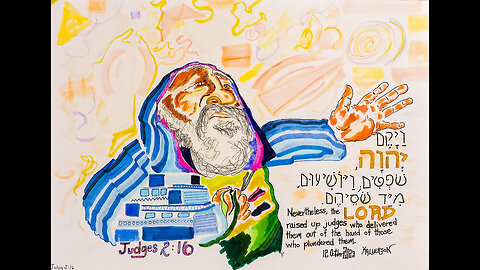 וַיָּקֶם
יְהוָה,
שֹׁפְטִים, וַיּוֹשִׁיעוּם,
מִיַּד שֹׁסֵיהֶם
Nevertheless, the LORD
raised up judges who delivered
them out of the hand of those
who plundered them.
Judges 2:16
Judges 2:16